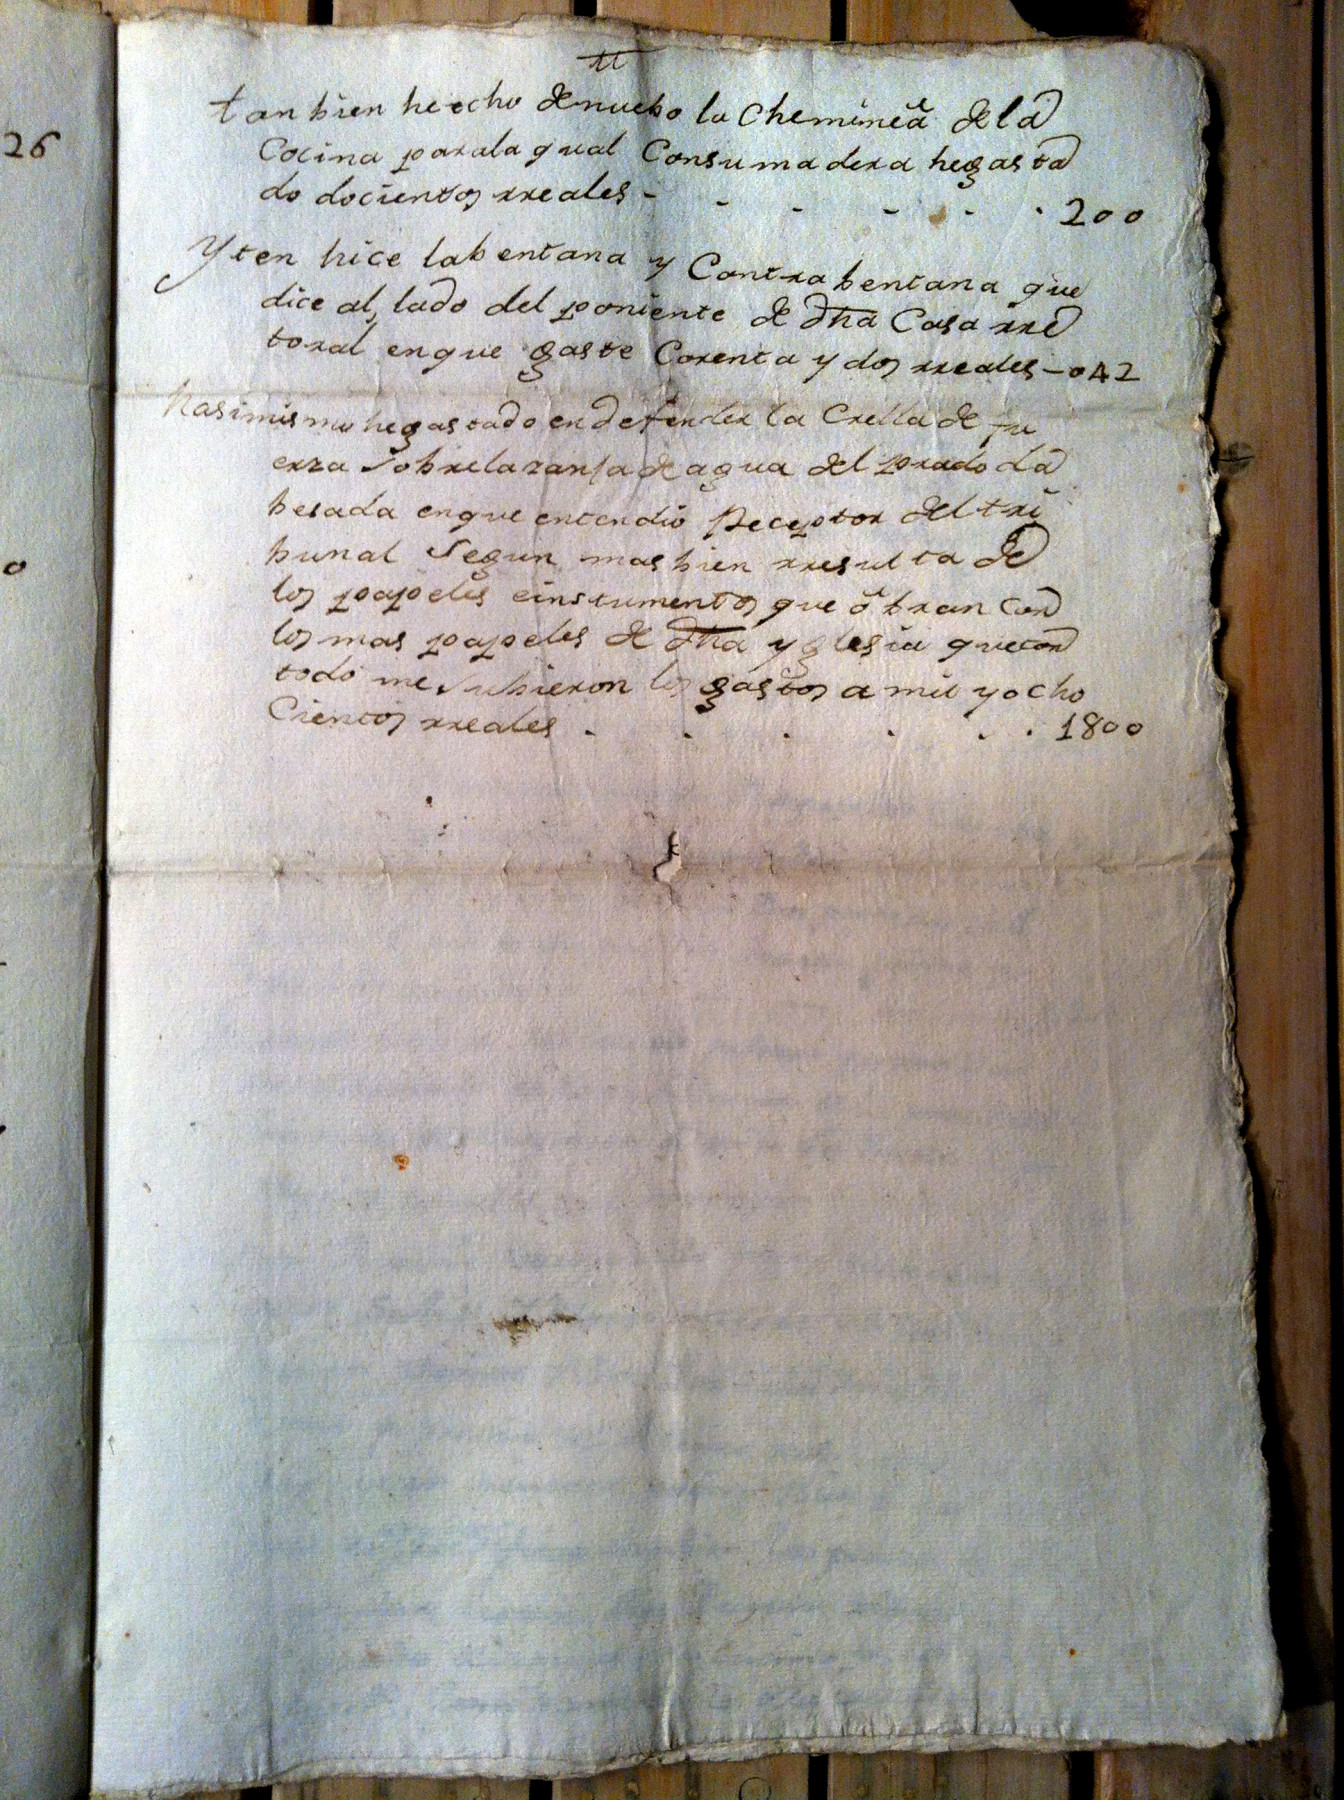 26
tt
tanbien heecho denuebo la Cheminea dela
Cocina parala qual Consumadera hegasta
do docientos rreales - - - - - . 200
Yten hice labentana y Contrabentana que
dice al lado del poniente de dha Casa rre
toral enque gaste Corenta y dos rreales - 042
hasimismo hegastado endefender la Crella de fu
erza sobrela zanja de agua del prado da
besada enque entendio Receptor del tri
bunal Segun mas bien rresulta de
los papeles einstumentos que obran con
los mas papeles de dha yglesia que con
todo me subieron los gastos a mil y ocho
Cientos rreales . . . . . . 1800
o